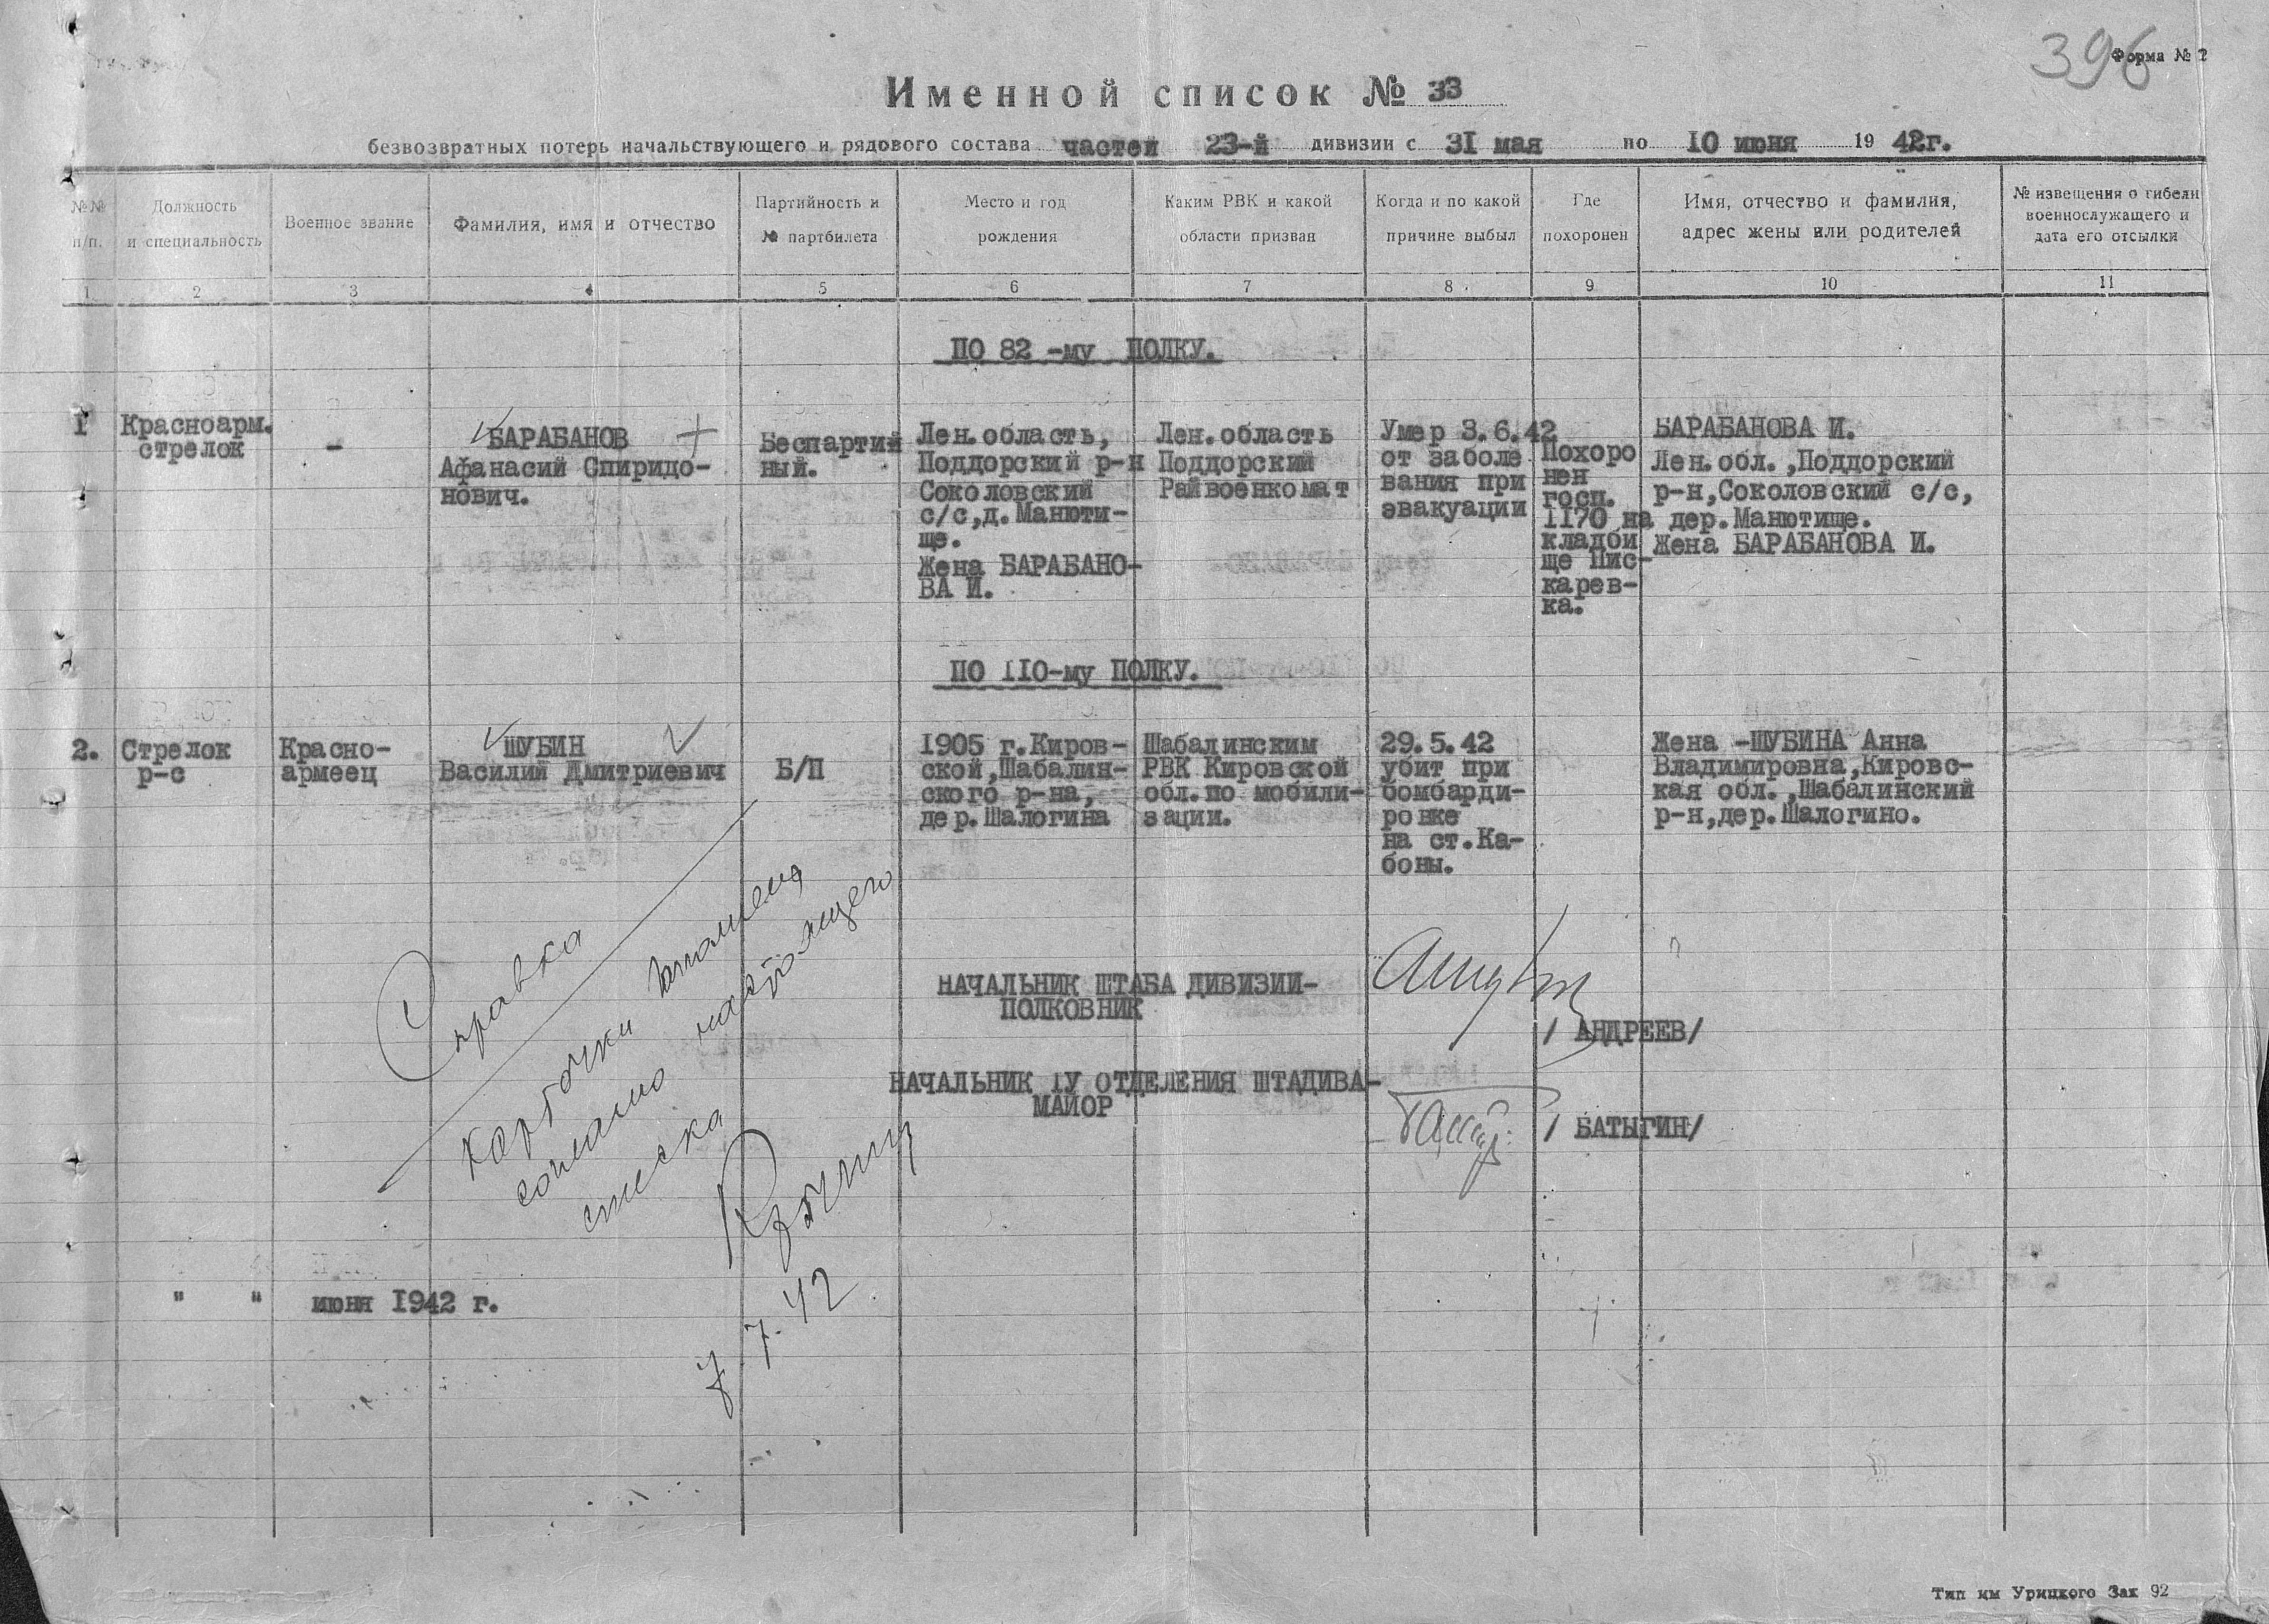 396
Форма № 2
Именной список № 33
безвозвратных потерь начальствующего и рядового состава частей 23-й дивизии с 31 мая по 10 июня 1942г.
№№ п/п.
Должность и специальность
Военное звание
Фамилия, имя и отчество
Партийность и № партбилета
Место и год рождения
Каким РВК и какой области призван
Когда и по какой причине выбыл
Где похоронен
Имя, отчество и фамилия, адрес жены или родителей
№ извещения о гибели военнослужащего и дата его отсылки
1 2 3 4 5 6 7 8 9 10 11
ПО 82 -му ПОЛКУ.
1
Красноарм.
стрелок
-
БАРАБАНОВ
Афанасий Спиридо-
нович.
Беспартий
ный.
Лен.область,
Поддорский р-н
Соколовский
с/с,д.Манюти-
ще.
Жена БАРАБАНО-
ВА И.
Лен.область
Поддорский
Райвоенкомат
Умер 3.6.42
от заболе
вания при
эвакуации
Похоро
нен
госп.
1170 на
кладби
ще Пис-
карев-
ка.
БАРАБАНОВА И.
Лен.обл.,Поддорский
р-н,Соколовский с/с,
дер.Манютище.
Жена БАРАБАНОВА И.
ПО 110-му ПОЛКУ.
2.
Стрелок
р-с
Красно-
армеец
ШУБИН
Василий Дмитриевич
Б/П
1905 г.Киров-
ской,Шабалин-
ского р-на,
дер.Шалогина
Шабалинским
РВК Кировской
обл.по мобили-
зации.
29.5.42
убит при
бомбарди-
ровке
на ст.Ка-
боны.
Жена -ШУБИНА Анна
Владимировна,Кировс-
кая обл.,Шабалинский
р-н,дер.Шалогино.
Справка
Карточки
согласно настоящего
списка
7.7.42
НАЧАЛЬНИК ШТАБА ДИВИЗИИ-
ПОЛКОВНИК
/ АНДРЕЕВ/
НАЧАЛЬНИК IУ ОТДЕЛЕНИЯ ШТАДИВА-
МАЙОР
/ БАТЫГИН/
" " июня 1942 г.
Тип им Урицкого Зак 92